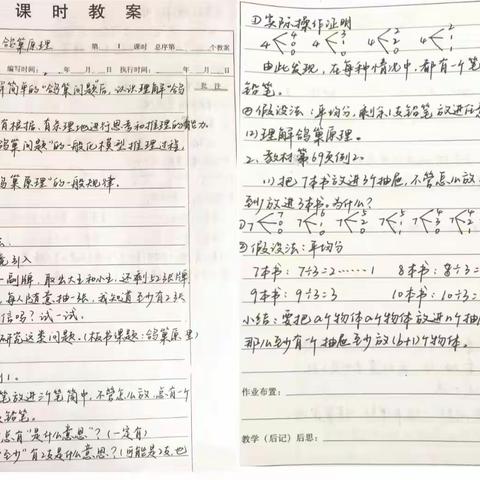 课 时 教 案
鸽巢原理
第 1 课时 总序第 个教案
编写时间: 年 月 日 执行时间: 年 月 日
解简单的“鸽巢问题后,认识理解“鸽
批 注
有根据、有条理地进行思考和推理的能力。
鸽巢问题”的一般化模型推理过程
鸽巢原理”的一般规律。
引入
一副牌,取出大王和小王,还剩52张牌
每人随意抽一张,我知道至少有2张
信吗?试一试。
研究这类问题。(板书课题:鸽巢原理)
1。
笔放进三个笔筒中,不管怎么放,总有一个
铅笔。
总有”是什么意思”?(一定有)
“至少”有2支是什么意思?(可能是2支,也
①实际操作证明
4 4 0 0
4 3 1 0
4 2 2 0
4 2 1 1
由此发现,在每种情况中,都有一个笔
铅笔。
②假设法:平均分,剩余1支铅笔放进任意
(2)理解鸽巢原理。
2、教材第69页例2。
(1)把7本书放进3个抽屉,不管怎么放
至少放进3本书。为什么?
②假设法:平均分
7本书:7÷3=2……1 8本书:8÷3=
9本书:9÷3=3 10本书:10÷3=
小结:要把a个物体a个物体放进n个抽
那么至少有一个抽屉至少放(b+1)个物体。
作业布置:
教学(后记)后思: